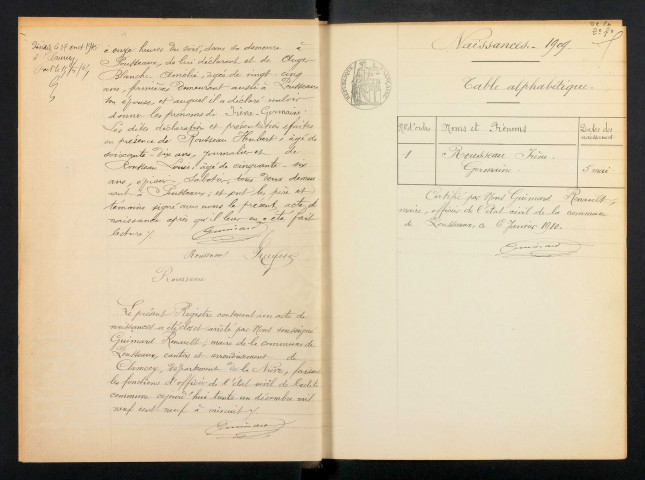 à onze heures du soir, dans sa demeure à
de lui déclarant et de
Blanche Amélie, âgée de vingt-cinq
ans, fermière demeurant aussi à
son épouse et auquel il a déclaré vouloir
donner les prénoms de Irène-Germaine.
Les dites déclaration et présentation faites
en présence de Rousseau Humbert, âgé de
soixante dix ans, journalier et de
Rousseau Louis, âgé de cinquante-six
ans, sabotier, tous deux demeu-
rant à et ont les père et
témoins signé avec nous le présent acte de
naissance après qu'il leur en a été fait
lecture
Guimard
Rousseau
Rousseau
Le présent Registre contenant un acte de
naissances a été clos et arrêté par Nous soussigné
Guimard maire de la commune de
canton et arrondissement de
Clamecy, département de la Nièvre, faisant
les fonctions d'officier de l'état civil de ladite
commune aujourd'hui trente un décembre mil
neuf cent neuf à minuit
Guimard
Naissances - 1909.
Table alphabétique.
Nos d'ordre Noms et Prénoms Dates des naissances
1 Rousseau Irène
Germaine 5 mai
Certifié par Nous Guimard
maire, officier de l'état civil de la commune
de ce 6 Janvier 1910.
Guimard